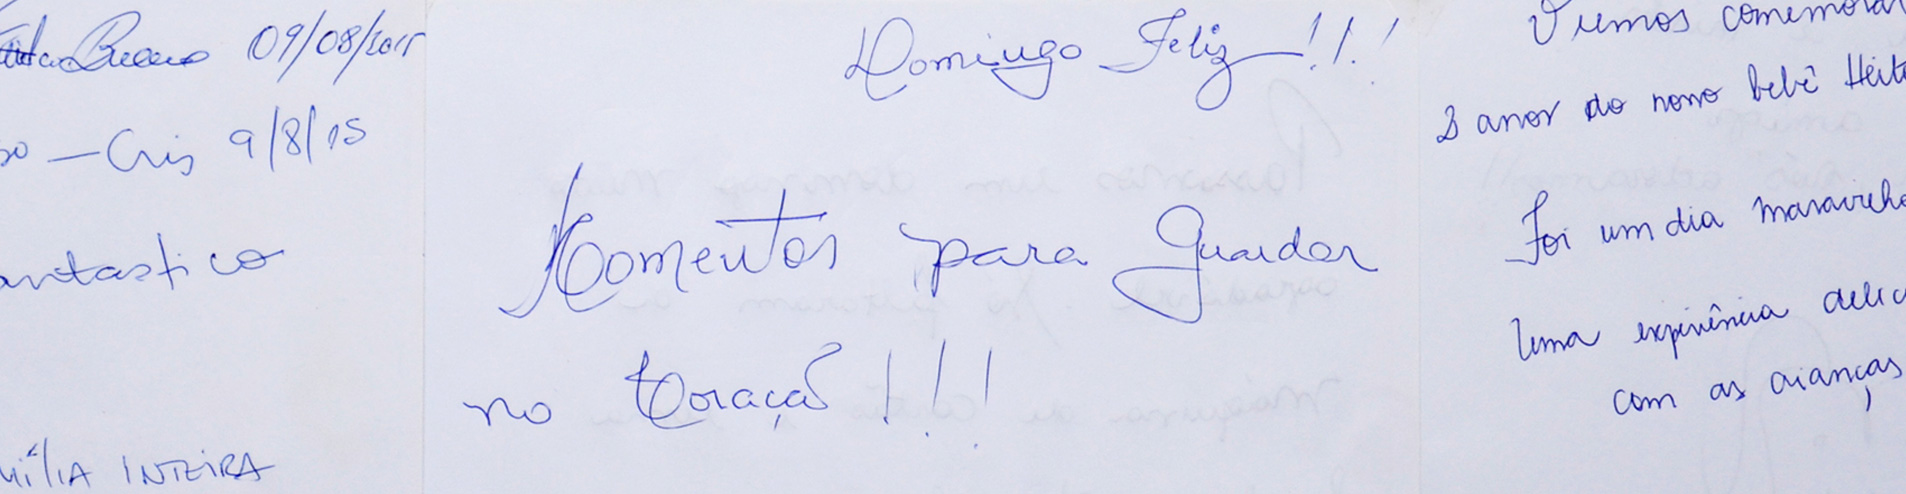 Bueno 09/08/2015
so — Cris 9/8/15
antastico
mília INTEIRA
Domingo Feliz!!!
Momentos para Guardar
no Coração!!!
Viemos comemorar
2 anos do nosso bebê Heito
Foi um dia maravilho
Uma experiência delic
com as crianças